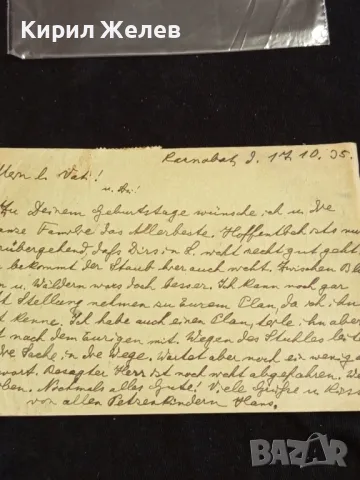 Кирил Желев
Karnobat, d. 17.10.35.
Mein l. Vati!
u. Du!
Zu Deinem Geburtstage wünsche ich u. die
ganze Familie das Allerbeste. Hoffentlich ists nur
vorübergehend, daß Dirs in L. nicht recht gut geht,
bekommt der Staub hier auch nicht. Zwischen
u. Wäldern wars doch besser. Ich kann noch gar
Stellung nehmen zu Eurem Plan, da ich ihn
kenne. Ich habe auch einen Plan, teile ihn aber
nach dem Eurigen mit. Wegen des Stuhles leitet
die Sache in die Wege. Wartet aber noch ein wenig
Besagter Herr ist noch nicht abgefahren.
Nochmals alles Gute! Viele Grüße u.
von allen Petrenkindern Hans.
BAZAR